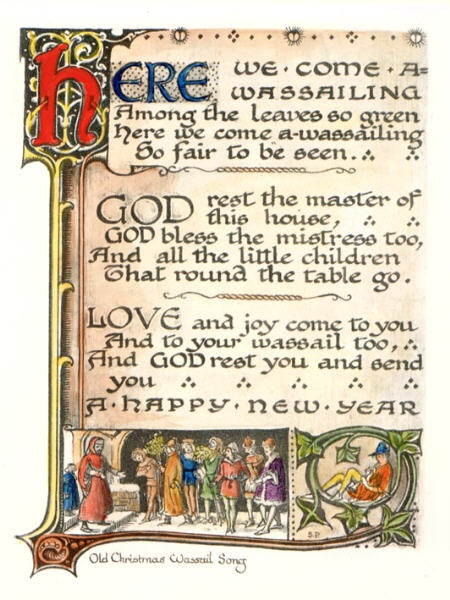 HERE WE · COME · A-
WASSAILING
Among the leaves so green
Here we come a-wassailing
So fair to be seen..
GOD rest the master of
this house,
GOD bless the mistress too,
And all the little children
That round the table go.
LOVE and joy come to you
And to your wassail too,
And GOD rest you and send
you
A · HAPPY · NEW · YEAR
S.P.
Old Christmas Wassail Song